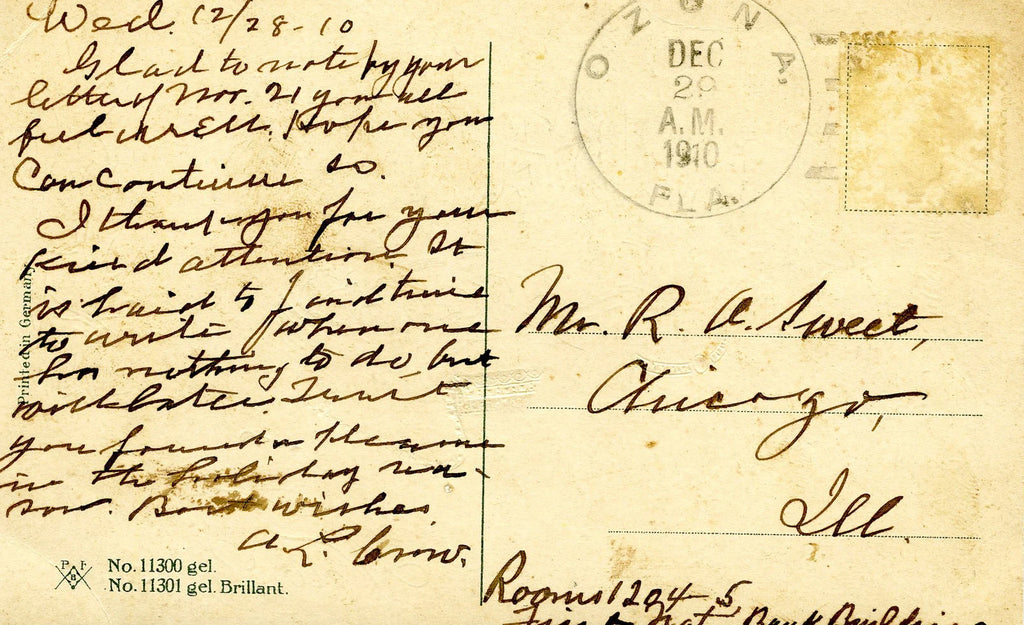 Wed. 12/28-10
Glad to note by your
letter of Nov. 21 you all
feel well. Hope you
can continue so.
I thank you for your
kind attention. It
is hard to find time
to write when one
has nothing to do, but
will later. Trust
you found pleasure
in the holiday sea-
son. Best wishes
A. L. Crow.
Printed in Germany
P F
B
No. 11300 gel.
No. 11301 gel. Brillant.
OZONA.
DEC
29
A.M.
1910
FLA.
Mr. R. A. Sweet,
Chicago,
Ill.
Rooms 1204-5
First Nat Bank Building